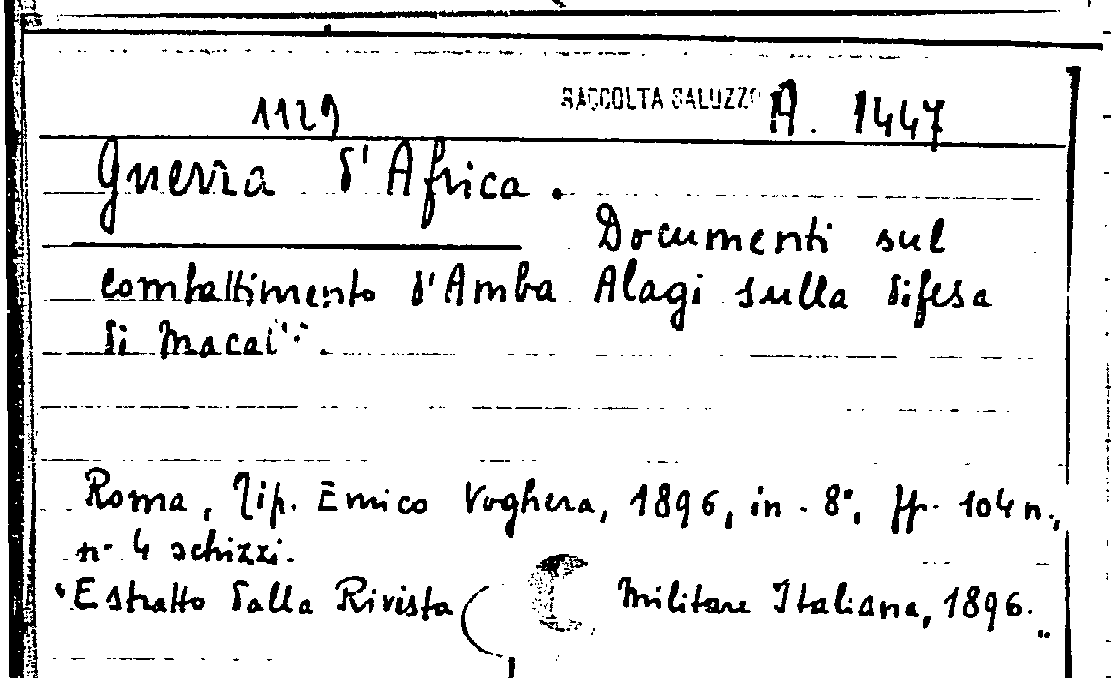 1129 RACCOLTA SALUZZO A. 1447
Guerra d'Africa.
Documenti sul
combattimento d'Amba Alagi sulla difesa
di Macal¨.
Roma, Tip. Emico Voghera, 1896, in-8°, pp. 104 n.,
n° 4 schizzi.
"Estratto dalla Rivista Militare Italiana, 1896."